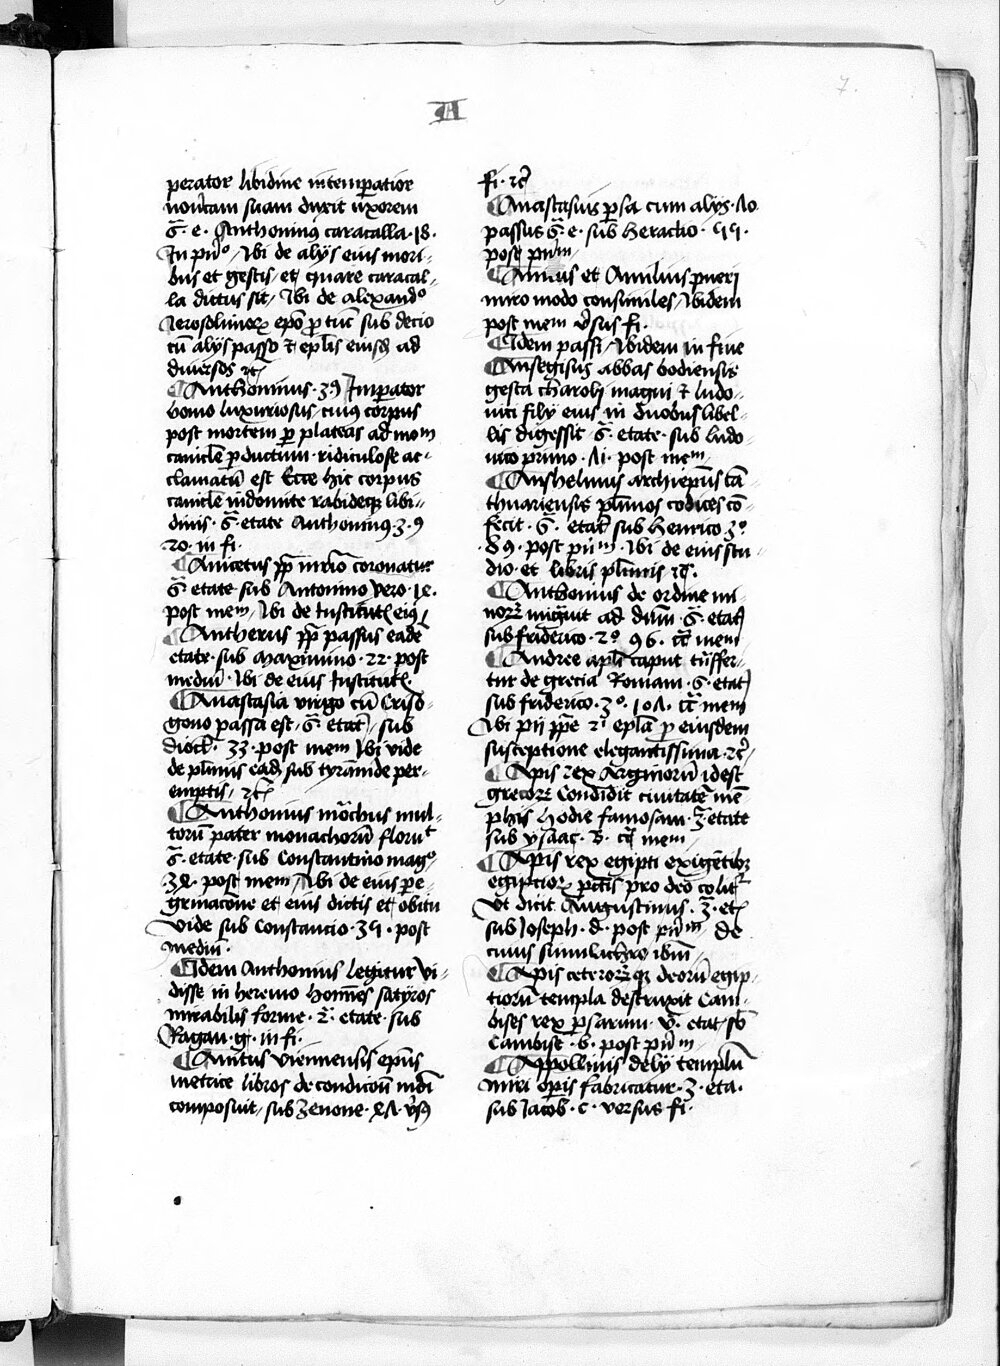 7.
A
perator libidine intemperatior
noûcam suam duxit uxorem
6̄. e. Anthoninus caracalla. 18.
In prin̄º / Ubi de alijs eius mori-
bus et gestis / et quare caracal-
la dictus sit / Ubi de alexandº
Jerosolimoꝝ epō ꝑ tūc sub decio
cū alijs passo ⁊ ep̄lis eiusꝗ ad
diuersos ⁊c̄
¶ Anthoninus. 39 Imꝑator
homo luxuriosus / cuiꝰ corpus
post mortem ꝑ plateas ad mom
canicle ꝑductum ridiculose ac-
clamatū est Ecce hic corpus
canicle indomite rabideqꝫ libi-
dinis. 6̄ etate Anthoninꝰ. 3. 9
20. in fi.
¶ Anicetus pp̄ coronatur
6̄ etate sub Antonino vero. 18.
post mem / Ubi de Instituti eiꝰ
¶ Antherus pp̄ passus eadē
etate. sub maximino. 22. post
mediū. Ubi de eius Institut
¶ Anastasia virgo cū Criso-
gono passa est. 6̄ etat / sub
diocl. 33. post mem Ubi vide
de plimis eād sub tyrānide per-
emptis / ⁊c̄
¶ Anthonius mōchus mul-
torū pater monachorū floruᵗ
6̄. etate. sub Constantino magº
38. post mem / Ubi de eius pe-
grinacōne et eius dictis et obitu
Vide sub Constancio. 39. post
mediū.
¶ Idem Anthonius legitur vi-
disse in heremo homīes satyros
mirabilis forme. 2̄. etate. sub
Ragau. g. in fi.
¶ Auitus viennensis epūs
metrice libros de condicōn mūdi
composuit / sub Zenone. v̄sꝰ
fi. ⁊c̄
¶ Anastasius ꝑsa cum alijs. 70
passus 6̄. e. sub heraclio. 55.
post prin̄m
¶ Amicus et Amilius pueri
miro modo consimiles / Ibidem
post mem v̄sus fi.
¶ Idem passi / Ibidem in fine
¶ Ansegisus abbas bodiensis
gesta charoli magni ⁊ ludo-
uici filij eius in duobus libel-
lis digessit. 6̄. etate. sub ludo-
uico primo. 71. post mem
¶ Anshelmus archiepūs cā-
thuariensis plimos codices cō-
fecit. 6̄. etat sub Henrico 3º
89. post prin̄m. Ubi de eius stu-
dio. et libris plimis ⁊c̄.
¶ Anthonius de ordine mi-
norꝝ migrat ad dnūm. 6̄. etat
sub friderico. 2º 96. cc̄ mem
¶ Andree apli caput tnsfer-
tur de grecia Romam. 6̄. etat
sub friderico. 3º. 107. cc̄ mem
Ubi pij ppe 2ⁱ epla ꝑ eiusdem
susceptione elegantissima. ⁊c̄
¶ Apis rex Arginorū idest
grecorꝝ Condidit ciuitatē mē-
phis hodie famosam. 3̄. etate
sub ysaac. B. cc̄ mem
¶ Apis rex egipti exigētibꝫ
egiptiorꝝ pctis pro deo colitᵘʳ
Ut dicit Augustinus. 3̄. et
sub Joseph. d. post prin̄m de
cuius simulachro ibm̄
¶ Apis ceterorꝝqꝫ deorū egip-
tiorū templa destruxit Cam-
bises rex ꝑsarum. 5̄. etat / sb
Cambise. 6. post prin̄m
¶ Appollinis delij templū
miri oꝑis fabricatur. 3. eta.
sub Jacob. c. versus fi.